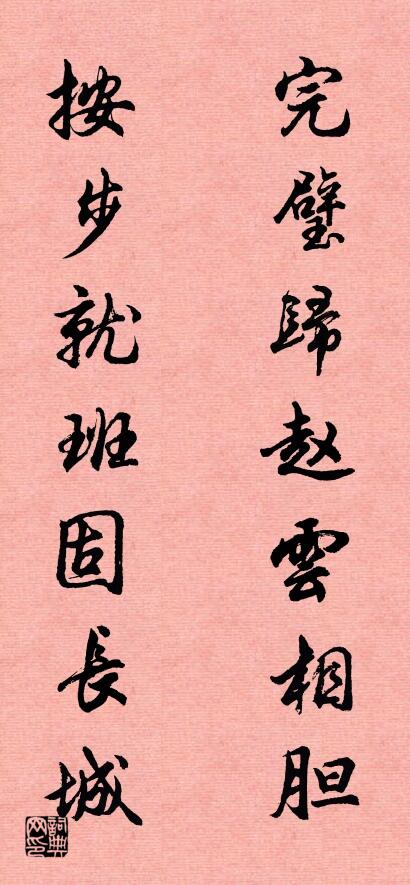 完璧歸赵雲相胆
按步就班固長城
詞典网印